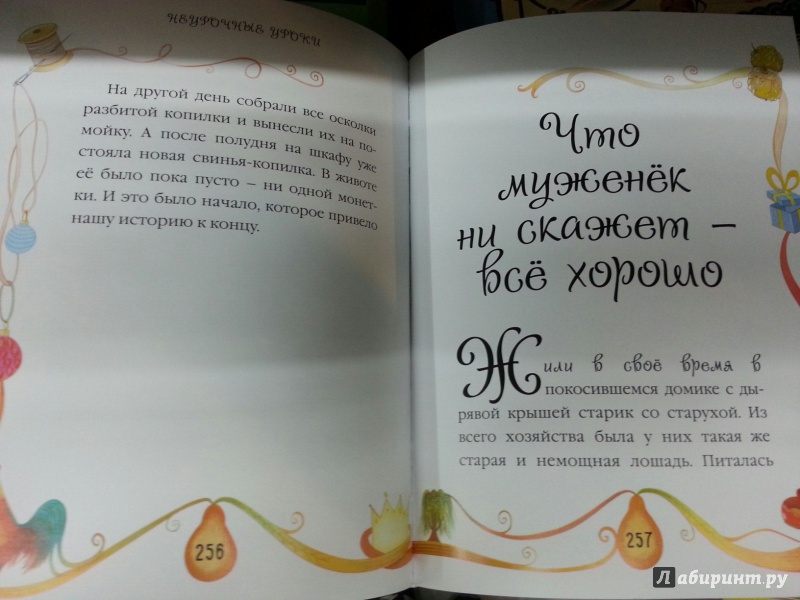 НЕУРОЧНЫЕ УРОКИ
На другой день собрали все осколки
разбитой копилки и вынесли их на по-
мойку. А после полудня на шкафу уже
стояла новая свинья-копилка. В животе
её было пока пусто – ни одной монет-
ки. И это было начало, которое привело
нашу историю к концу.
256
Что
муженёк
ни скажет –
всё хорошо
Жили в своё время в
покосившемся домике с ды-
рявой крышей старик со старухой. Из
всего хозяйства была у них такая же
старая и немощная лошадь. Питалась
257
Лабиринт.ру